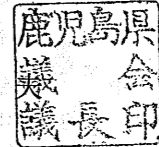 鹿児島県
議会
議長印